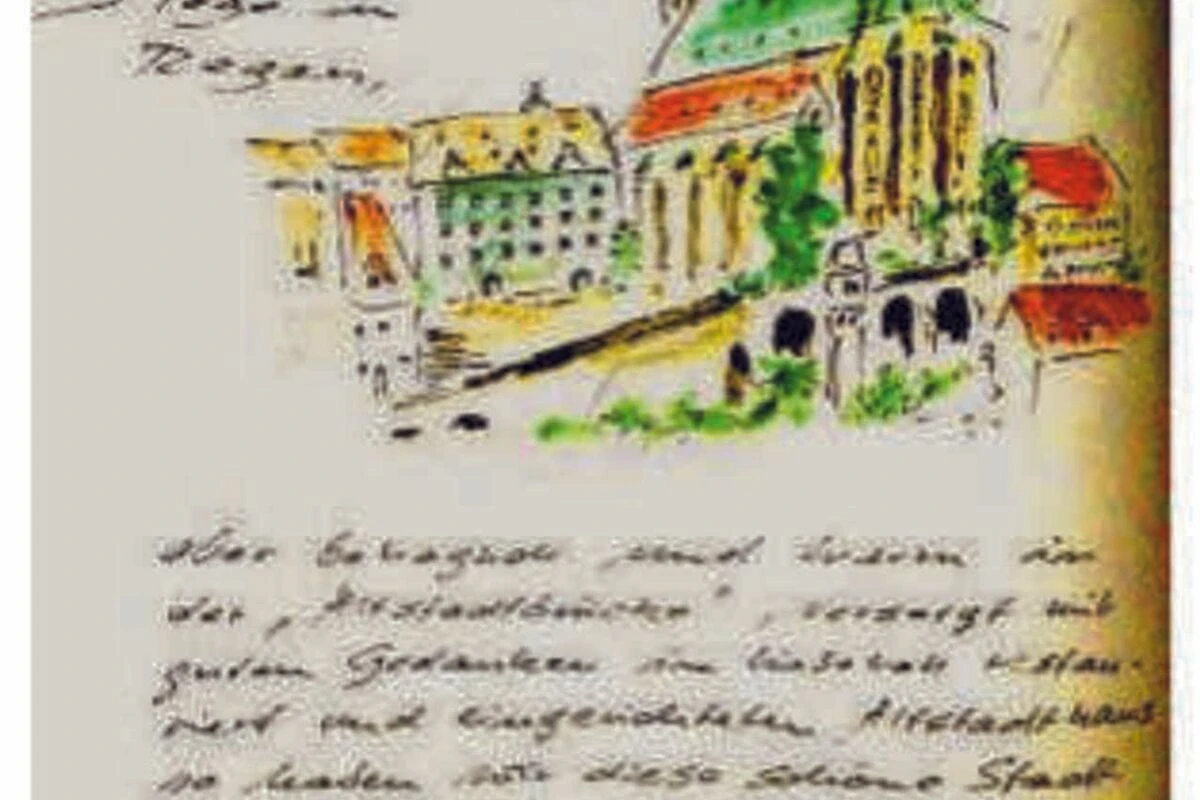 Tage in
Regen,
aber behaglich und warm in
der „Altstadtbrücke", versorgt mit
guten Gedanken im restau-
riert und eingerichteten Altstadthaus
so haben wir diese schöne Stadt